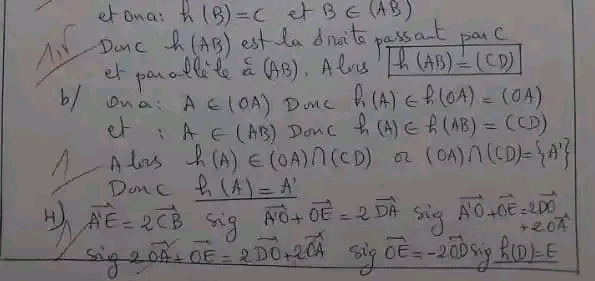 et on a : h(B)=C et B ∈ (AB)
Donc h(AB) est la droite passant par C
et parallèle à (AB). Alors h(AB) = (CD)
b/ On a : A ∈ (OA) Donc h(A) ∈ h(OA) = (OA)
et : A ∈ (AB) Donc h(A) ∈ h(AB) = (CD)
1 Alors h(A) ∈ (OA)∩(CD) or (OA)∩(CD)={A'}
Donc h(A) = A'
4) A'E = 2CB sig A'O + OE = 2DA sig A'O + OE = 2DO
+ 2OA
sig 2OA + OE = 2DO + 2OA sig OE = -2OD sig h(D) = E